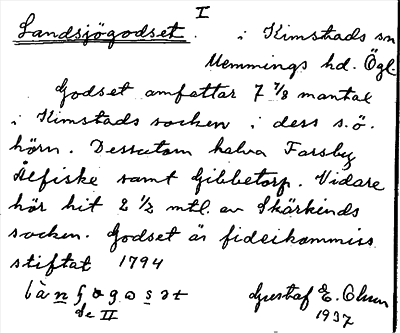 I
Landsjögodset. i Kimstads sn
Memmings hd. Ögl.
Godset omfattar 7 7/8 mantal
i Kimstads socken i dess s.ö.
hörn. Dessutom halva Farsby
Ålfiske samt Gibbetorp. Vidare
hör hit 2 1/2 mtl. av Skärkinds
socken. Godset är fideikommiss
stiftat 1794
Gustaf E. Olsson
de II 1937